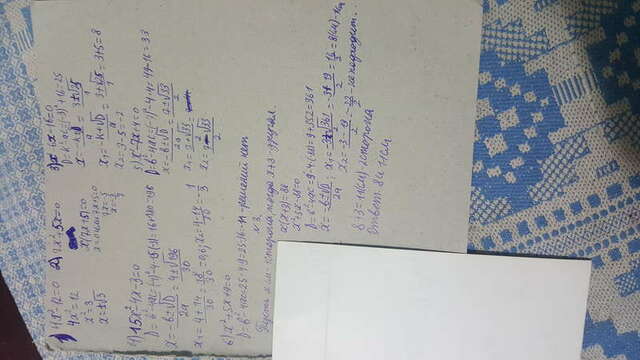 1) 4x²-12=0
4x²=12
x²=3
x=±√3
2) 7x²+5x=0
x(7x+5)=0
x=0 или 7x+5=0
7x=-5
x=-5/7
3) x² 6x-16=0
D=k²-ac=(-3)²+16=25
x=(-k±√D)/a=(3±√25)/1
x₁=(-k+√D)/a=(3+√25)/1=3+5=8
x₂=3-5=-2
4) 15x²-4x-3=0
D=b²-4ac=(-4)²-4·15·(-3)=16+180=196
x=(-b±√D)/2a=(4±√196)/30
x₁=(4+14)/30=18/30=0,6; x₂=(4-14)/30=-1/3
5) x²-7x+4=0
D=b²-4ac=(-7)²-4·4=49-16=33
x=(-b±√D)/2a=(7±√33)/2
x₁=(7+√33)/2
x₂=(7-√33)/2
6) x²+5x+9=0
D=b²-4ac=25-4·9=25-36=-11-решений нет
№3.
Пусть x см-сторона, тогда x+3-другая.
x(x+3)=88
x²+3x-88=0
D=b²-4ac=9-4·(-88)=9+352=361
x=(-b±√D)/2a; x₁=(-3+√361)/2=(-3+19)/2=16/2=8(см)-
x₂=(-3-19)/2=-22/2-не подходит.
8+3=11(см)-2сторона
Ответ: 8и 11см